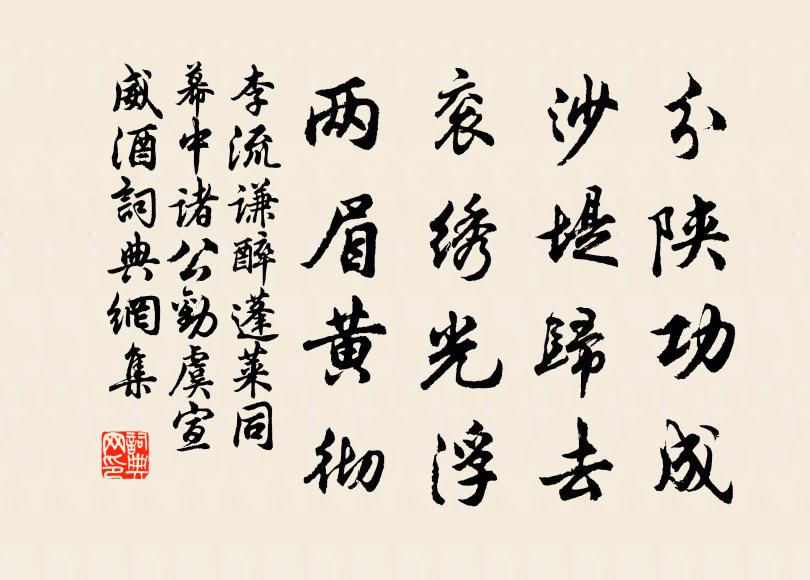 分陕功成
沙堤歸去
衮绣光浮
两眉黄彻
李流谦醉蓬莱同
幕中诸公勸虞宣
威酒詞典網集
詞典
网印